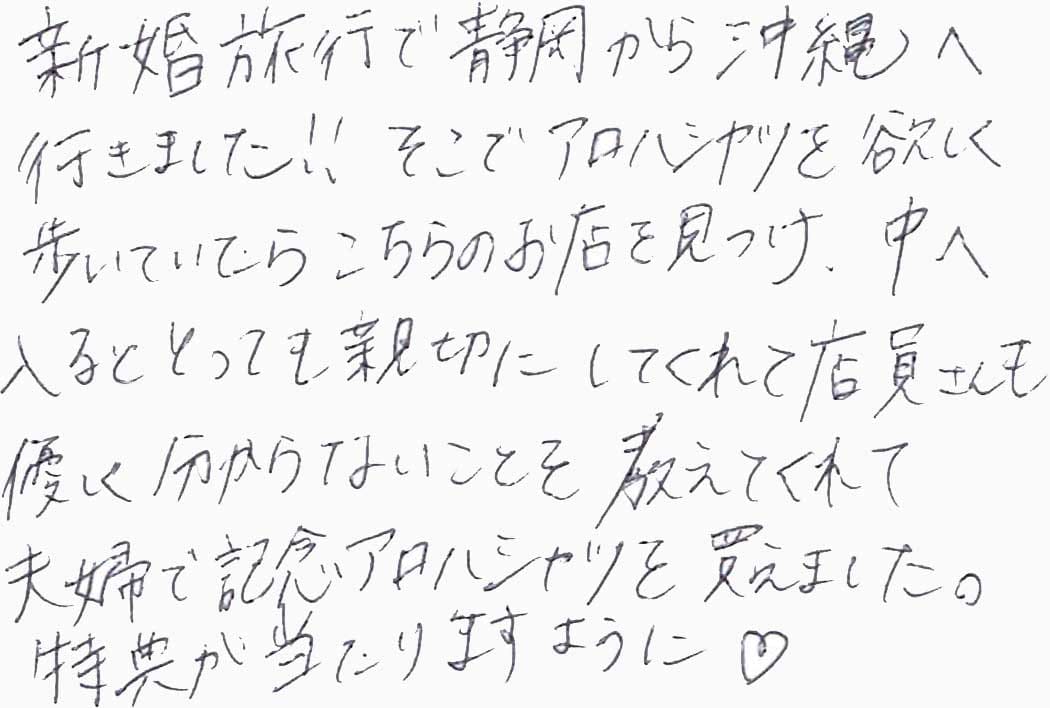 新婚旅行で静岡から沖縄へ
行きました!! そこでアロハシャツを欲しく
歩いていたらこちらのお店を見つけ、中へ
入るととっても親切にしてくれて店員さんも
優しく分からないことを教えてくれて
夫婦で記念アロハシャツを買えました。
特典が当たりますように♡